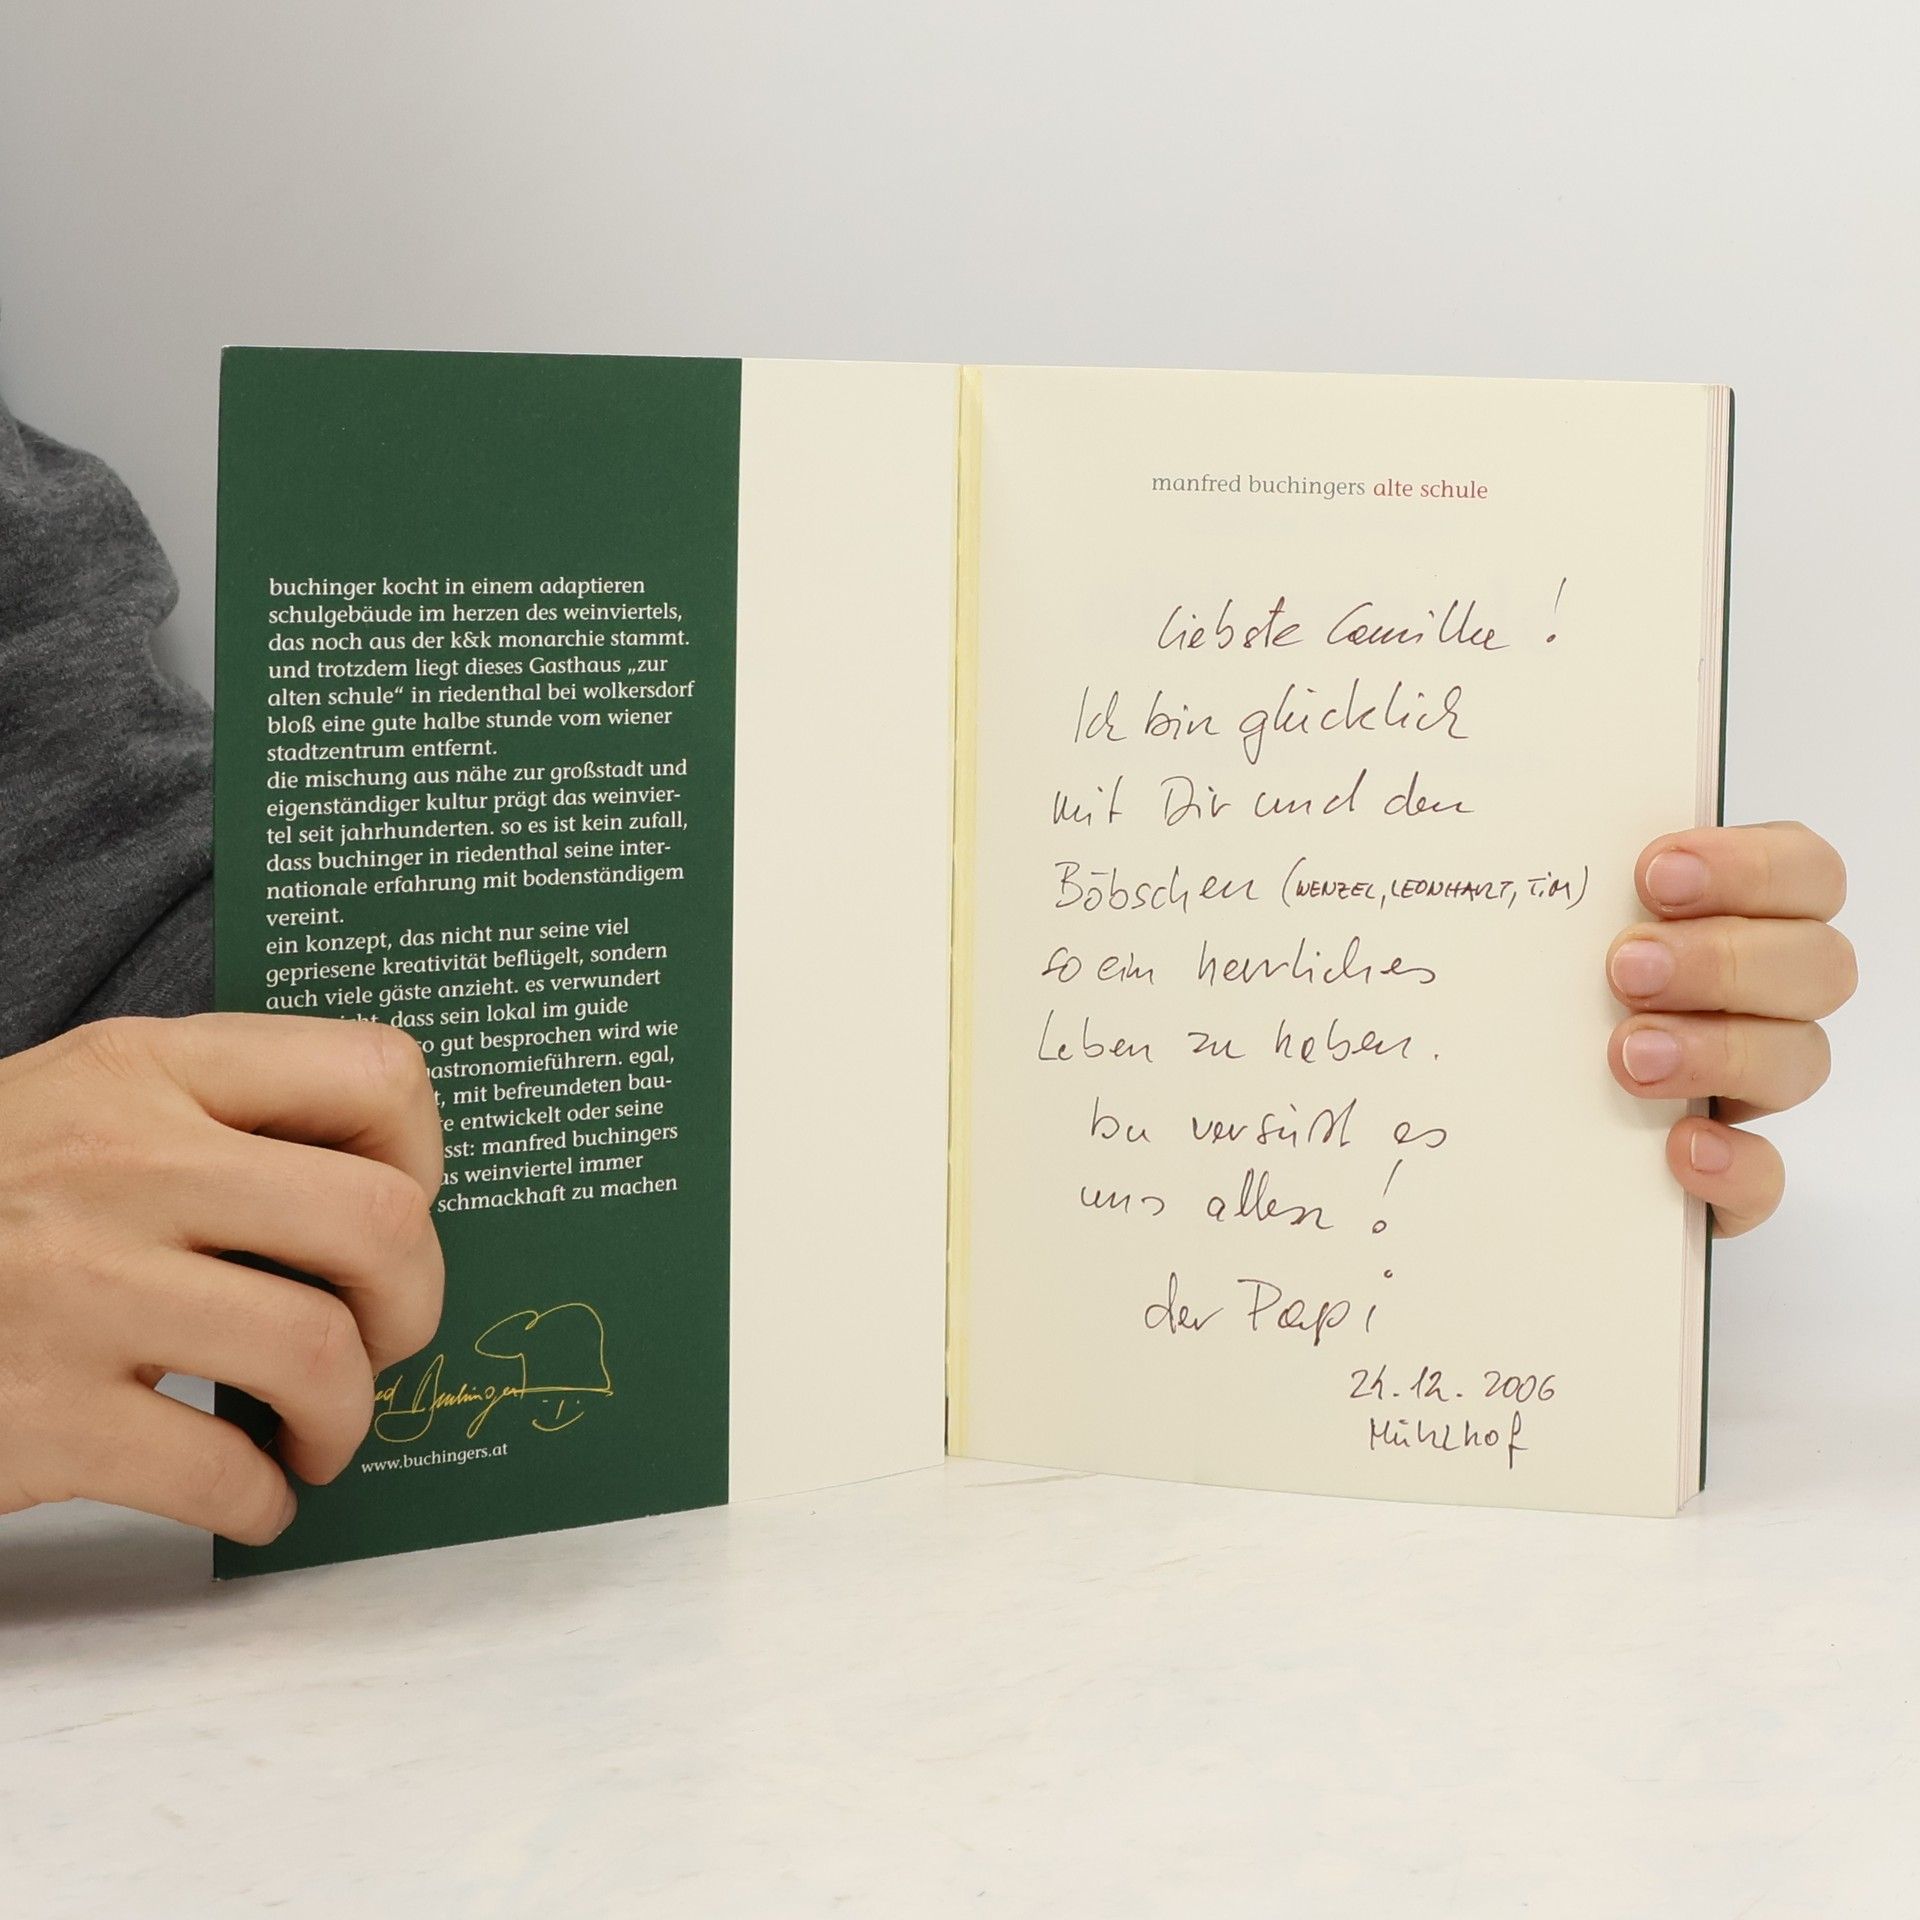 buchinger kocht in einem adaptieren
schulgebäude im herzen des weinviertels,
das noch aus der k&k monarchie stammt.
und trotzdem liegt dieses Gasthaus „zur
alten schule“ in riedenthal bei wolkersdorf
bloß eine gute halbe stunde vom wiener
stadtzentrum entfernt.
die mischung aus nähe zur großstadt und
eigenständiger kultur prägt das weinvier-
tel seit jahrhunderten. so es ist kein zufall,
dass buchinger in riedenthal seine inter-
nationale erfahrung mit bodenständigem
vereint.
ein konzept, das nicht nur seine viel
gepriesene kreativität beflügelt, sondern
auch viele gäste anzieht. es verwundert
dass sein lokal im guide
so gut besprochen wird wie
gastronomieführern. egal,
mit befreundeten bau-
entwickelt oder seine
manfred buchingers
weinviertel immer
schmackhaft zu machen
Buchinger
www.buchingers.at
manfred buchingers alte schule
Liebste Camilla !
Ich bin glücklich
mit Dir und den
Böbschen (WENZEL, LEONHART, TIM)
so ein herrliches
Leben zu haben.
Du versüßt es
uns allen !
der Papi
24.12.2006
Mühlhof